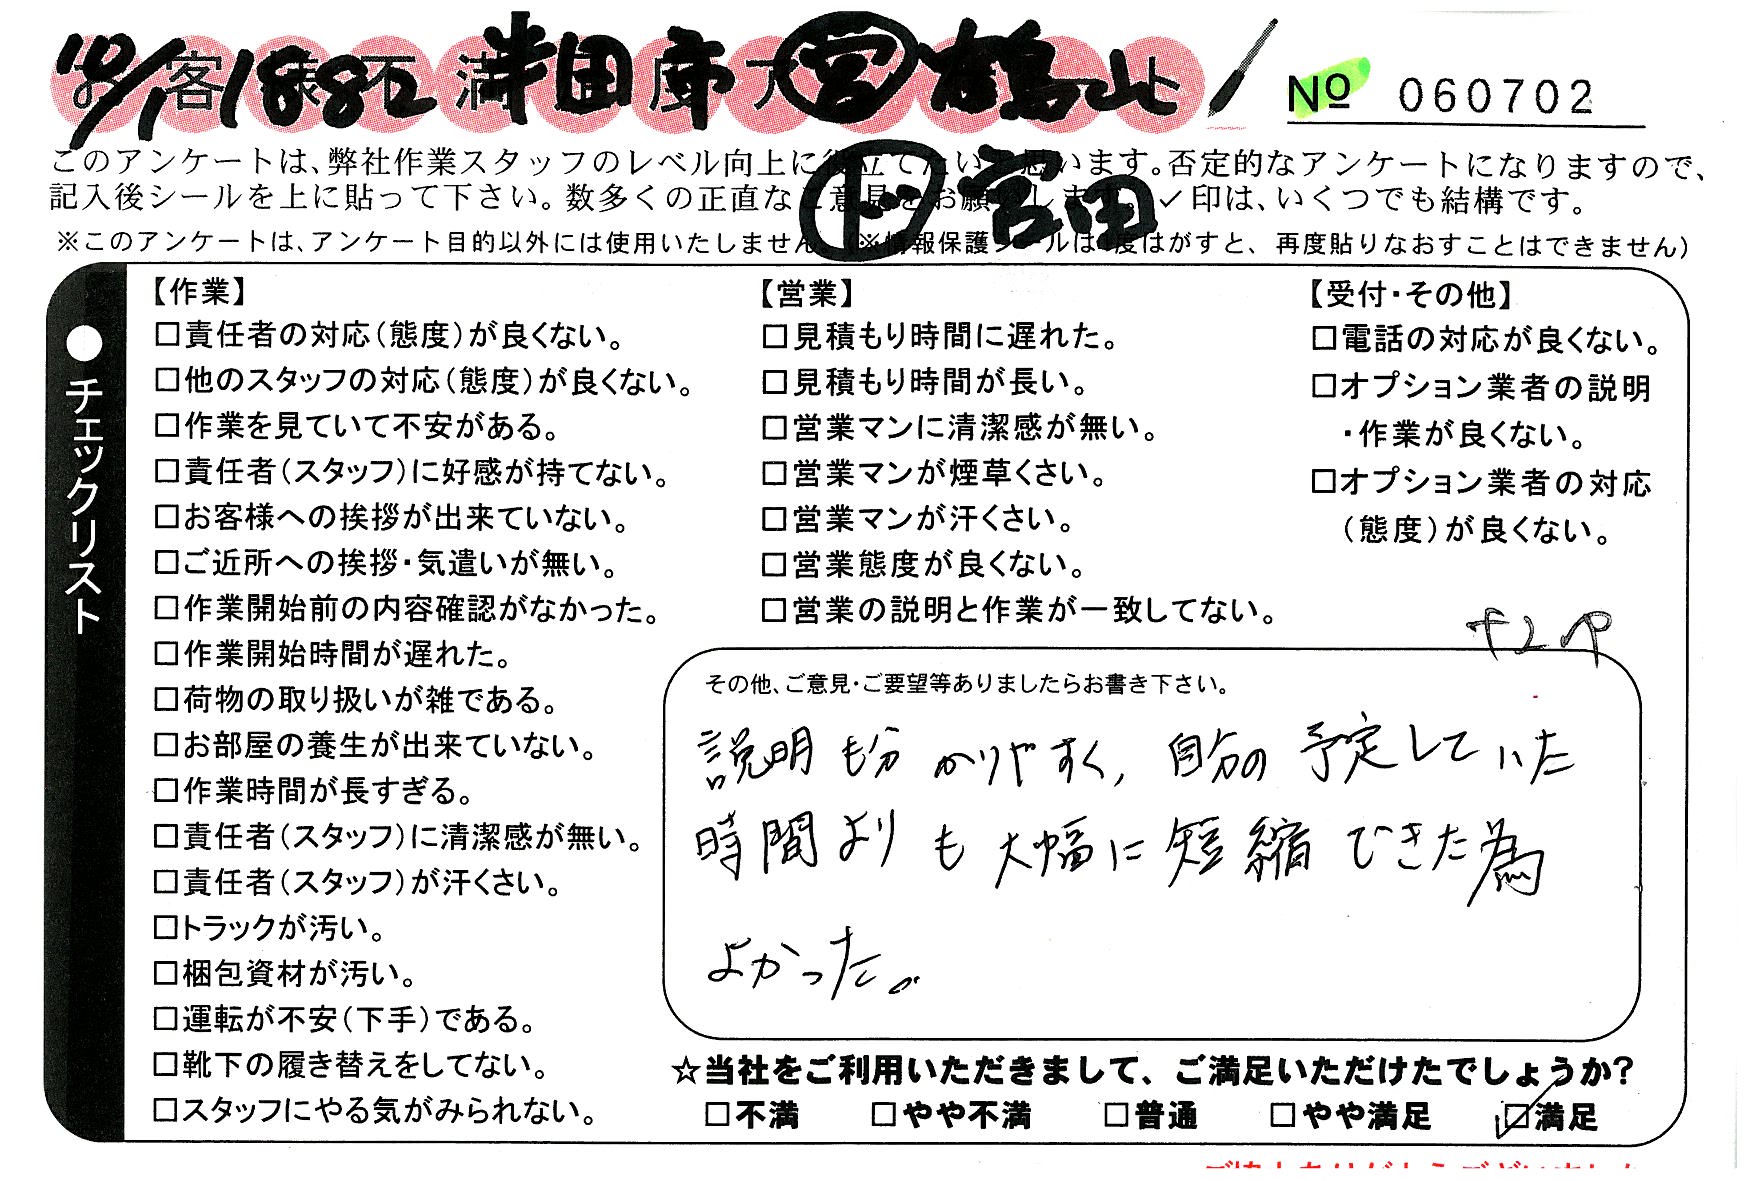 お客様不満足度アンケート
10/1 1882 半田市 営 鶴山
ト 宮田
No 060702
このアンケートは、弊社作業スタッフのレベル向上に役立てたいと思います。否定的なアンケートになりますので、
記入後シールを上に貼って下さい。数多くの正直なご意見をお願いします。✓印は、いくつでも結構です。
※このアンケートは、アンケート目的以外には使用いたしません。(※情報保護シールは1度はがすと、再度貼りなおすことはできません)
●チェックリスト
【作業】
□責任者の対応(態度)が良くない。
□他のスタッフの対応(態度)が良くない。
□作業を見ていて不安がある。
□責任者(スタッフ)に好感が持てない。
□お客様への挨拶が出来ていない。
□ご近所への挨拶・気遣いが無い。
□作業開始前の内容確認がなかった。
□作業開始時間が遅れた。
□荷物の取り扱いが雑である。
□お部屋の養生が出来ていない。
□作業時間が長すぎる。
□責任者(スタッフ)に清潔感が無い。
□責任者(スタッフ)が汗くさい。
□トラックが汚い。
□梱包資材が汚い。
□運転が不安(下手)である。
□靴下の履き替えをしてない。
□スタッフにやる気がみられない。
【営業】
□見積もり時間に遅れた。
□見積もり時間が長い。
□営業マンに清潔感が無い。
□営業マンが煙草くさい。
□営業マンが汗くさい。
□営業態度が良くない。
□営業の説明と作業が一致してない。
【受付・その他】
□電話の対応が良くない。
□オプション業者の説明
・作業が良くない。
□オプション業者の対応
(態度)が良くない。
その他、ご意見・ご要望等ありましたらお書き下さい。
説明も分かりやすく、自分の予定していた
時間よりも大幅に短縮できた為
よかった。
☆当社をご利用いただきまして、ご満足いただけたでしょうか?
□不満 □やや不満 □普通 □やや満足 ☑満足
ご協力ありがとうございました